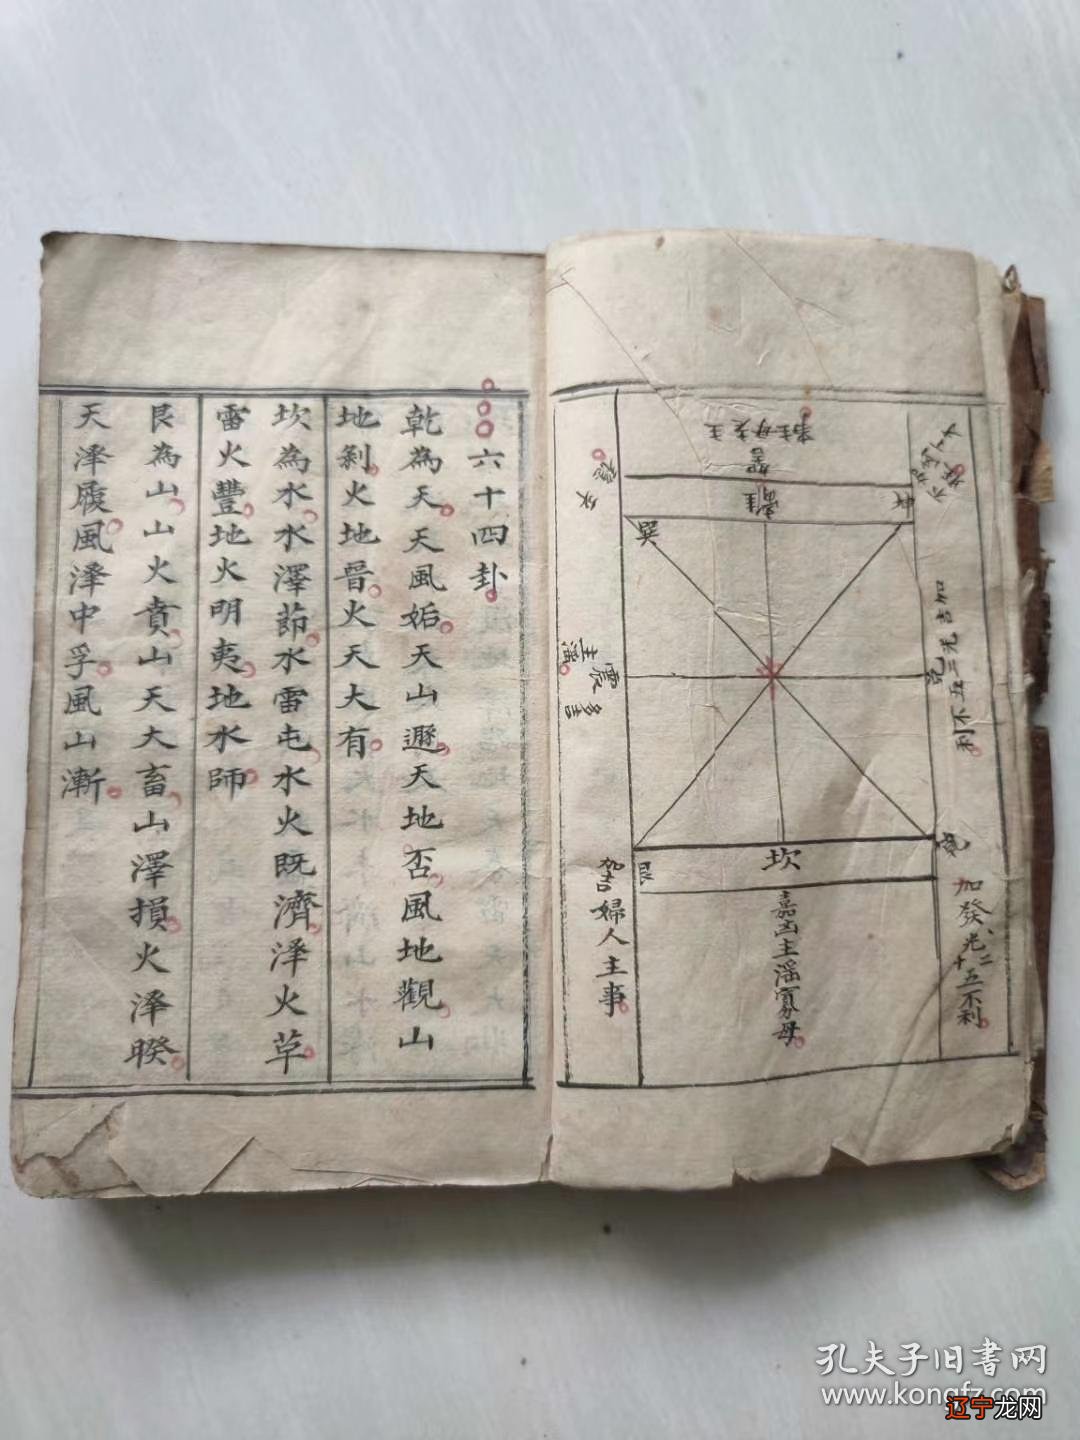 六十四卦
乾為天天風姤天山遯天地否風地觀山
地剝火地晉火天大有
坎為水水澤節水雷屯水火既濟澤火革
雷火豐地火明夷地水師
艮為山山火賁山天大畜山澤損火澤睽
天澤履風澤中孚風山漸
離
巽
坤
震
主滛
兌
坎
艮
乾
婦人主事
嘉凶主滛寡母
加發光二
十五不利
孔夫子旧書网
www.kongfz.com
辽宁龙网